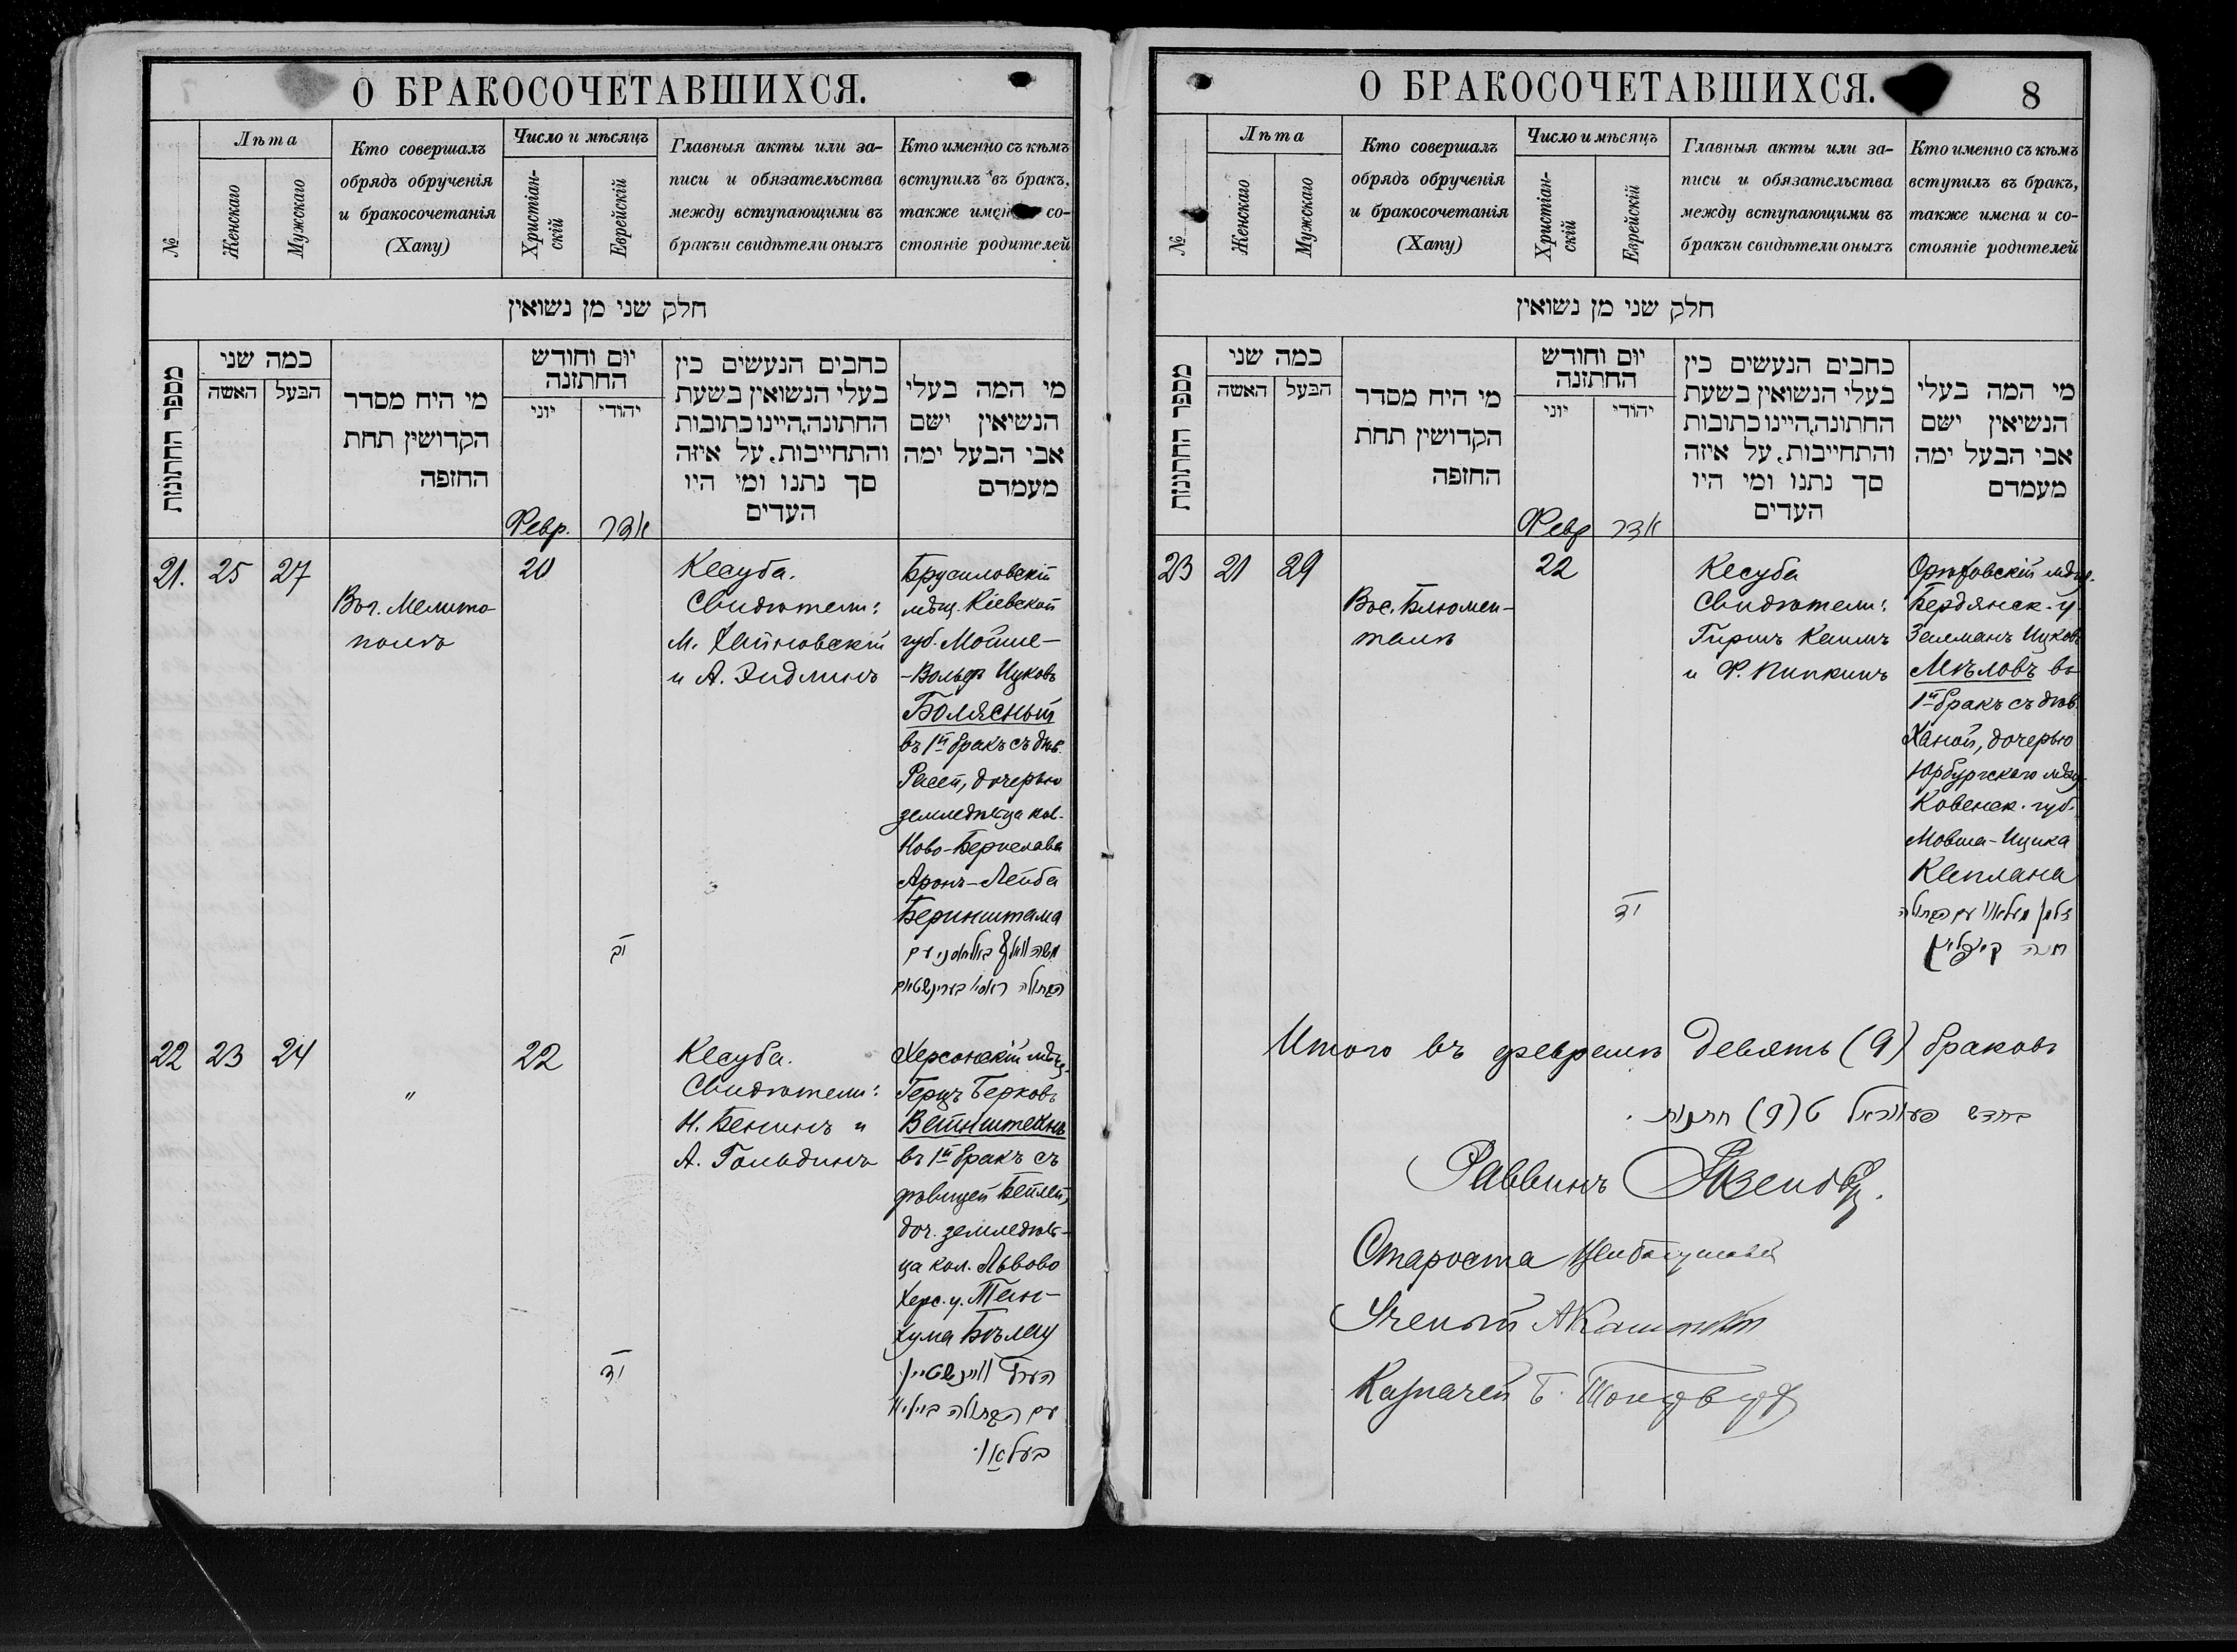 О БРАКОСОЧЕТАВШИХСЯ.
№
Лѣта
Женскаго
Мужскаго
Кто совершалъ
обрядъ обрученія
и бракосочетанія
(Хапу)
Число и мѣсяцъ
Христіан-
скій
Еврейскій
Главныя акты или за-
писи и обязательства
между вступающими въ
бракъ и свидѣтели оныхъ
Кто именно съ кѣмъ
вступилъ въ бракъ,
также имена и со-
стояніе родителей
חלק שני מן נשואין
מספר החתונות
כמה שני
האשה
הבעל
מי היח מסדר
הקדושין תחת
החופה
יום וחודש
החתונה
יוני
יהודי
כתבים הנעשים בין
בעלי הנשואין בשעת
החתונה, היינו כתובות
והתחייבות, על איזה
סך נתנו ומי היו
העדים
מי המה בעלי
הנשואין ושם
אבי הבעל ומה
מעמדם
Февр.
אדר
21.
25
27
Вос. Мелито-
поль
20
יב
Кесуба.
Свидѣтели:
М. Хайновскій
и А. Эидлинъ
Брусиловскій
мѣщ. Кіевской
губ. Мойше-
-Вольфъ Ицковъ
Болясный
въ 1й бракъ съ дѣв.
Расей, дочерью
земледѣльца кол.
Ново-Бериславъ
Аронъ-Лейба
Беринштама
22
23
24
"
22
יד
Кесуба.
Свидѣтели:
Н. Бенинъ и
А. Гольдинъ
Херсонскій мѣщ.
Герцъ Берковъ
Вейнштейнъ
въ 1й бракъ съ
дѣвицей Бейлей,
доч. земледѣль-
ца кол. Львово
Херс. у. Тан-
хума Бѣлау
О БРАКОСОЧЕТАВШИХСЯ.
8
№
Лѣта
Женскаго
Мужскаго
Кто совершалъ
обрядъ обрученія
и бракосочетанія
(Хапу)
Число и мѣсяцъ
Христіан-
скій
Еврейскій
Главныя акты или за-
писи и обязательства
между вступающими въ
бракъ и свидѣтели оныхъ
Кто именно съ кѣмъ
вступилъ въ бракъ,
также имена и со-
стояніе родителей
חלק שני מן נשואין
מספר החתונות
כמה שני
האשה
הבעל
מי היח מסדר
הקדושין תחת
החופה
יום וחודש
החתונה
יוני
יהודי
כתבים הנעשים בין
בעלי הנשואין בשעת
החתונה, היינו כתובות
והתחייבות, על איזה
סך נתנו ומי היו
העדים
מי המה בעלי
הנשואין ושם
אבי הבעל ומה
מעמדם
Февр
אדר
23
21
29
Вос. Блюмен-
таль
22
יד
Кесуба
Свидѣтели:
Гиршъ Капил
и Ф. Пипкинъ
Орѣховскій мѣщ.
Бердянск. у.
Залманъ Ицковъ
Мѣловъ въ
1й бракъ съ дѣв.
Ханой, дочерью
Юрбургскаго мѣщ.
Ковенск. губ.
Мовша-Ицика
Каплана
Итого въ февралѣ девять (9) браковъ
בחדש פעווראל ט (9) חתונות
Раввинъ
Староста
Ученый
Казначей